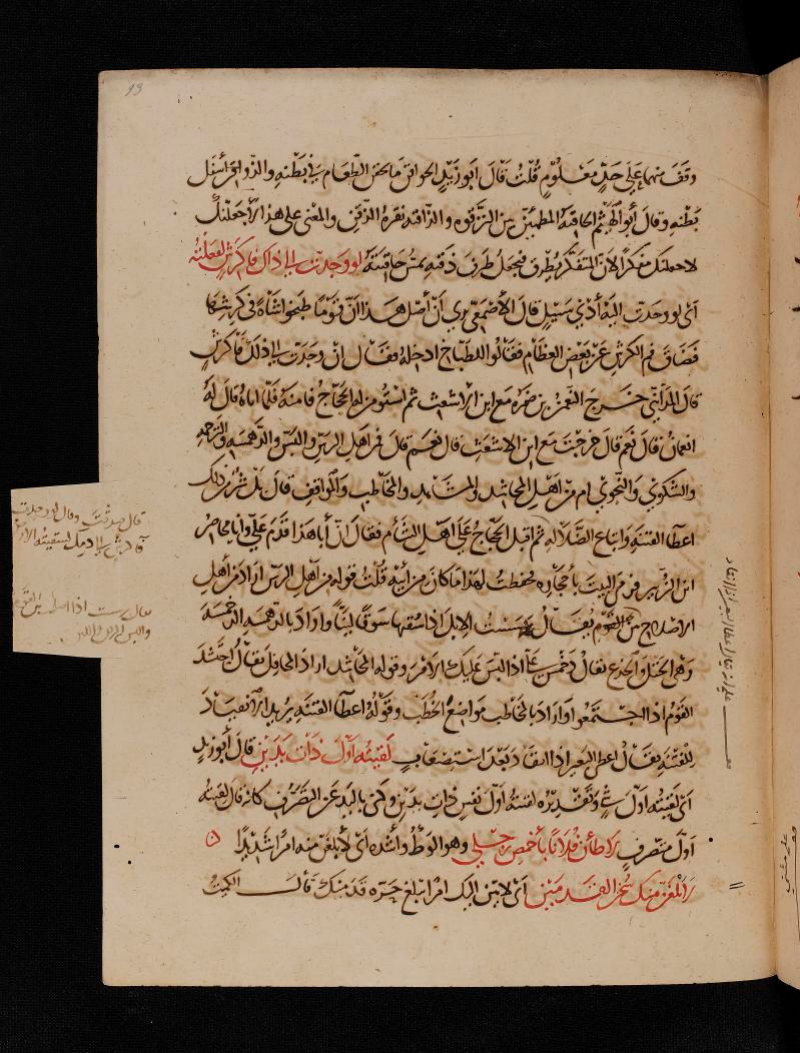 93
وقف منهما على حدّ معلوم قلت قال ابو زيد الحواقن ما يحقن الطعام في بطنه والذواقن أسفل
بطنه وقال أبو الهيثم الحاقنة المطمئن بين الترقوة والذاقنة نقرة الذقن والمعنى على هذا لأجعلنك
لاحملنك مفكرا لان المتفكر يطرق فيجعل طرف ذقنه يمس حاقنته لو وجدت الى ذاك فا كرش لفعلته
اى لو وجدت اليه أدنى سبيل قال الأصمعي نرى أنّ أصل هذا انّ قوما طبخوا شاة في كرشها
فضاق فم الكرش عن بعض العظام فقالوا للطباخ ادخله فقال ان وجدت الى ذلك فا كرش
قال المدائني خرج النعمن بن ضمرة مع ابن الاشعث ثم استؤمن له الحجاج فامنه فلما اتاه قال له
انعمان قال نعم قال خرجت مع ابن الاشعث قال نعم قال فمن اهل الرس والبس والدهمسة والدخمسة
والشكوى والنجوى ام من اهل المحاشد والمشاهد والمخاطب والمواقف قال بل شر من ذلك
اعطاء الفتنة واتباع الضلالة ثم اقبل الحجاج على اهل الشام فقال انّ أبا هذا قدم علىّ وانا محاصر
ابن الزبير فرمى البيت باحجاره فحفظت لهذا ما كان من أبيه قلت قوله من اهل الرس اراد من اهل
الاصلاح بين القوم يقال بسست الابل اذا سقتها سوقا لينا واراد بالدهمسة الدخمسة
وهي الختل والخدع يقال دخمس علىّ اذا لبس عليك الامر وقوله المحاشد اراد المحافل يقال احتشد
القوم اذا اجتمعوا واراد بالمخاطب مواضع الخطب وقوله اعطاء الفتنة يريد الانقياد
للفتنة يقال اعطى البعير اذا انقاد بعد استصعاب لقيته أول ذات يدين قال أبو زيد
اى لقيته اول شئ وتقديره لقيته أول نفس ذات يدين وكنى باليد عن التصرف كانه قال لقيته
أول متصرف لاطأن فلانا باخمص رجلي وهو الوطؤ وأشده اى لأبلغن منه امرا شديدا ه
لابلغن منك سخن القدمين اى لاتين اليك امرا يبلغ حره قدميك قال الكميت